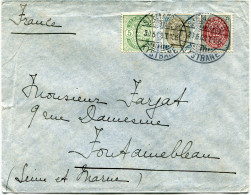 France
Monsieur Farjat
9 rue Damesme
Fontainebleau
(Seine et Marne)